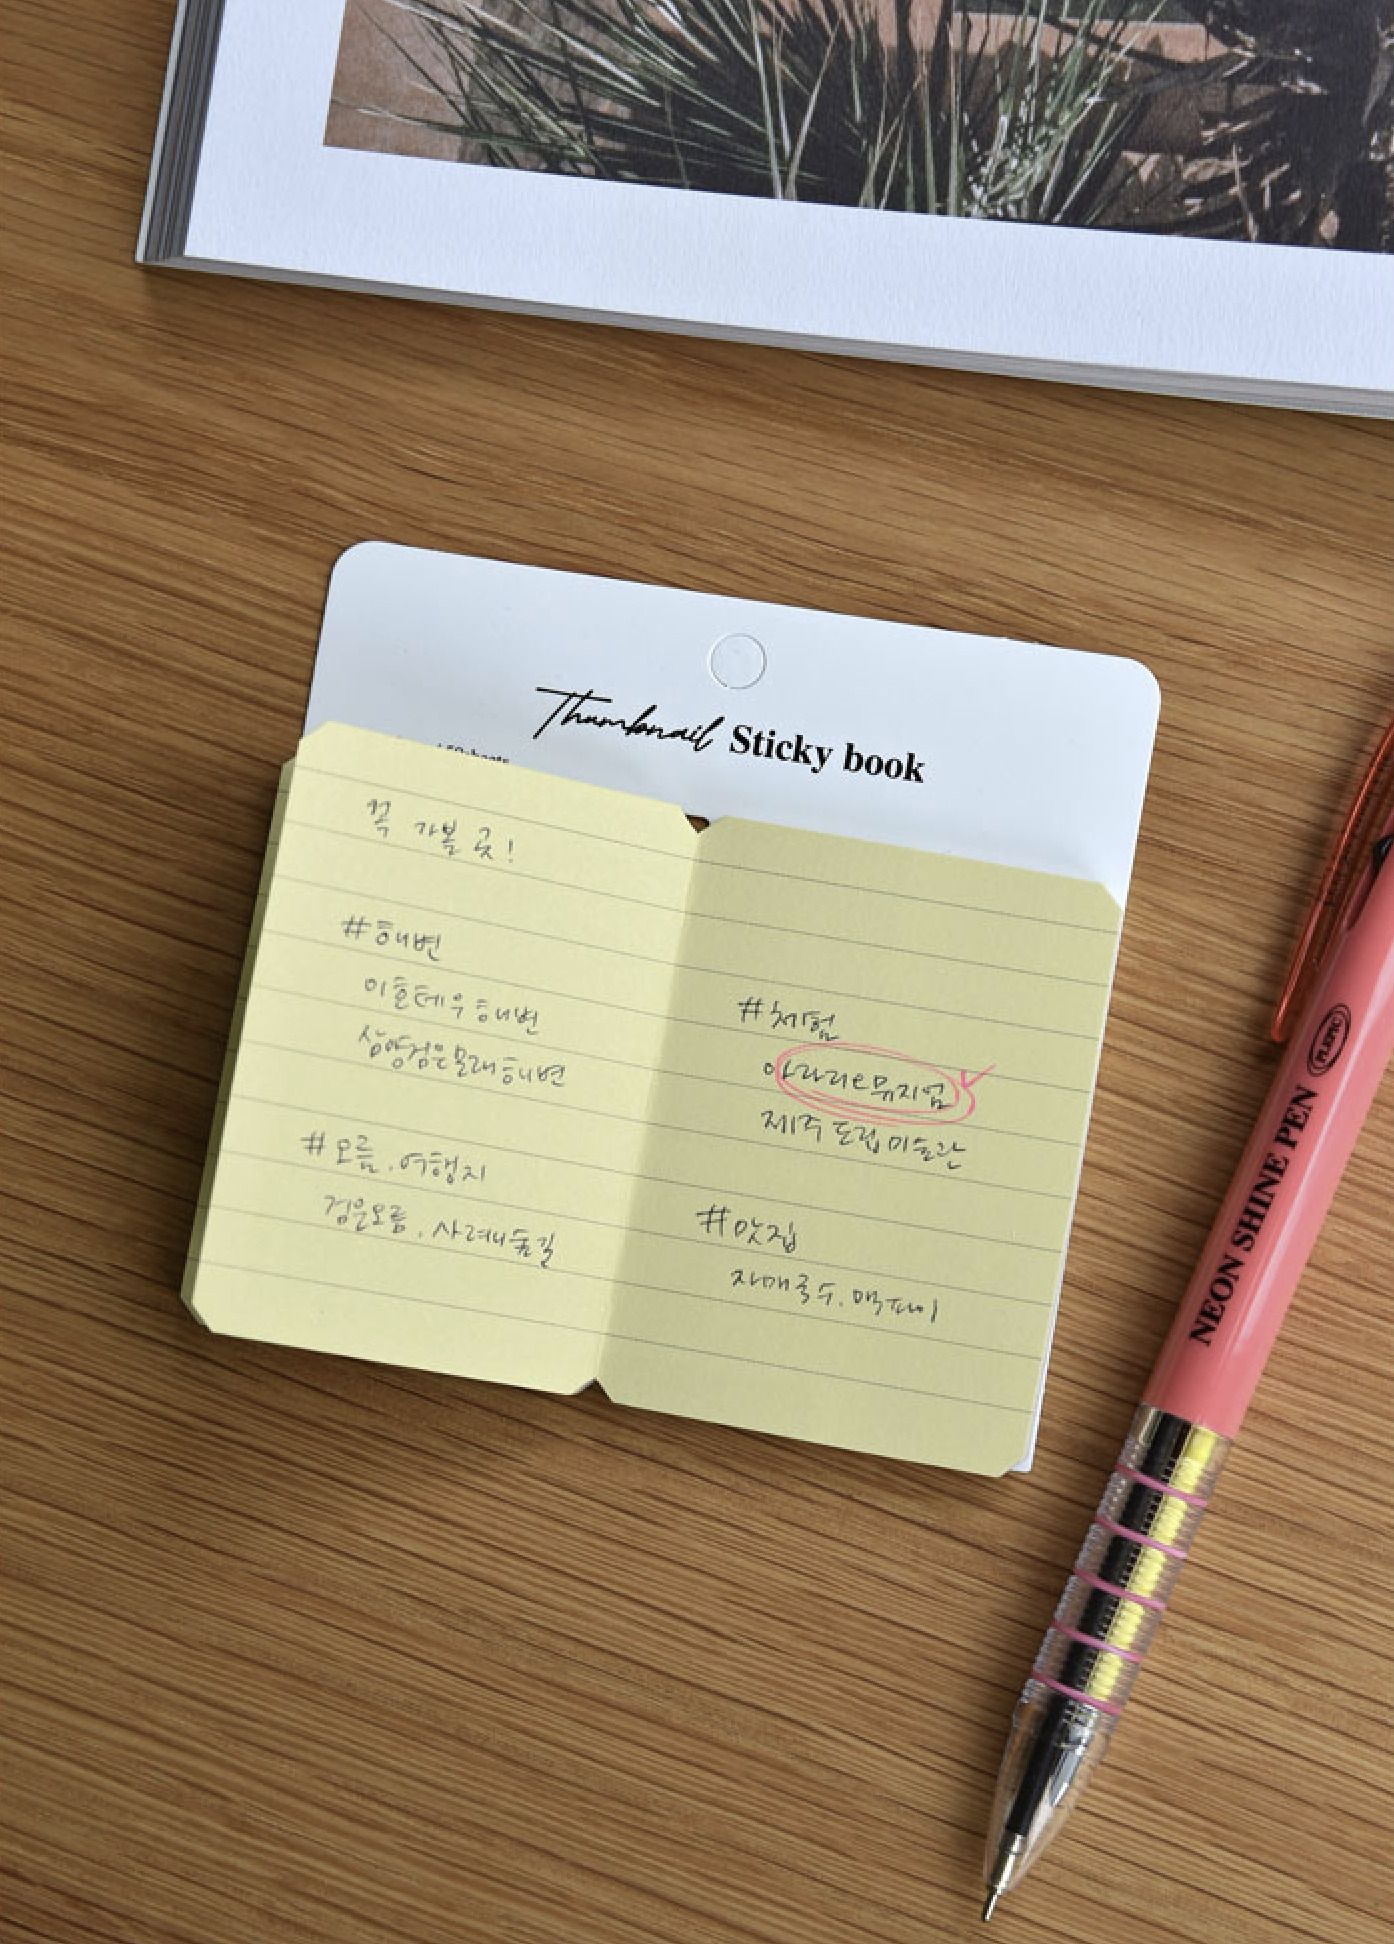 Thumbnail Sticky book
꼭 가볼 곳!
#해변
이호테우해변
삼양검은모래해변
#오름, 여행지
검은오름, 사려니숲길
#체험
아라리오뮤지엄
제주 도립미술관
#맛집
자매국수, 맥파이
NEON SHINE PEN
PLEPIC